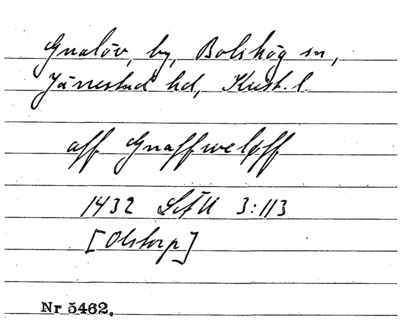 Gnalöv, by, Bolshög sn,
Järrestad hd, Krist. l.
aff Gnaffweløff
1432 LSÅU 3:113
[Olstorp]
Nr 5462.